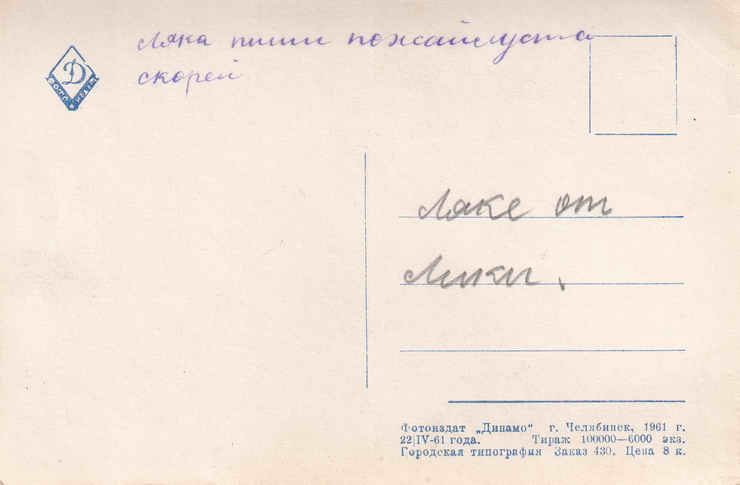 Ляка пиши пожайлуста
скорей
Д
Ляке от
Лики.
Фотоиздат „Динамо“ г. Челябинск, 1961 г.
22|IV-61 года. Тираж 100000—6000 экз.
Городская типография Заказ 430. Цена 8 к.